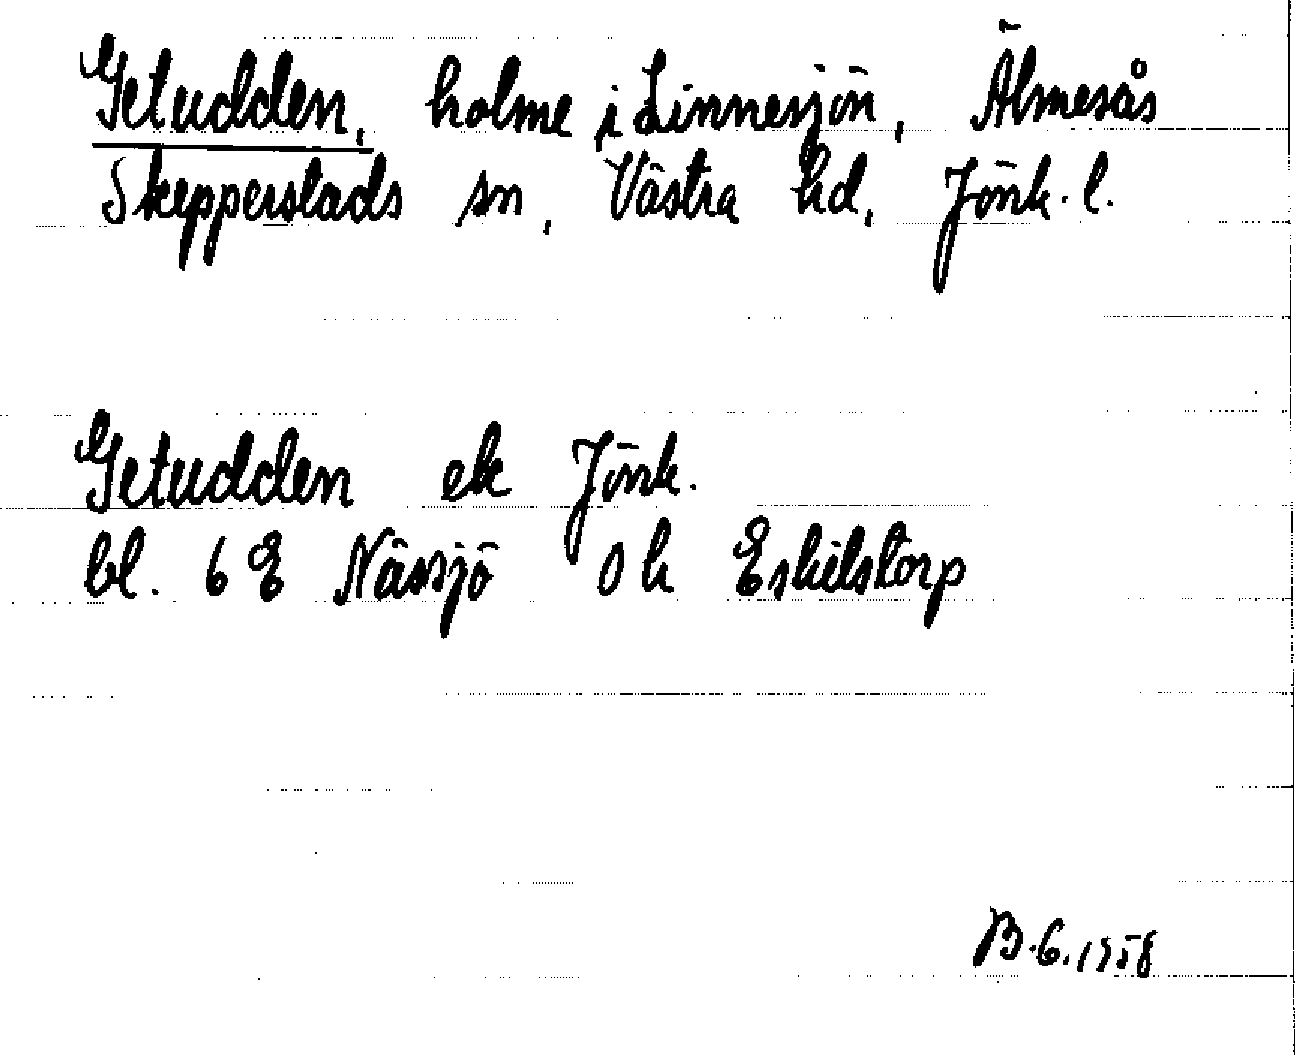 Getudden, holme i Linnesjön, Älmesås
Skepperstads sn, Västra hd, Jönk. l.
Getudden ek Jönk.
bl. 6 E Nässjö 0 h Eskilstorp
B. 6. 1958